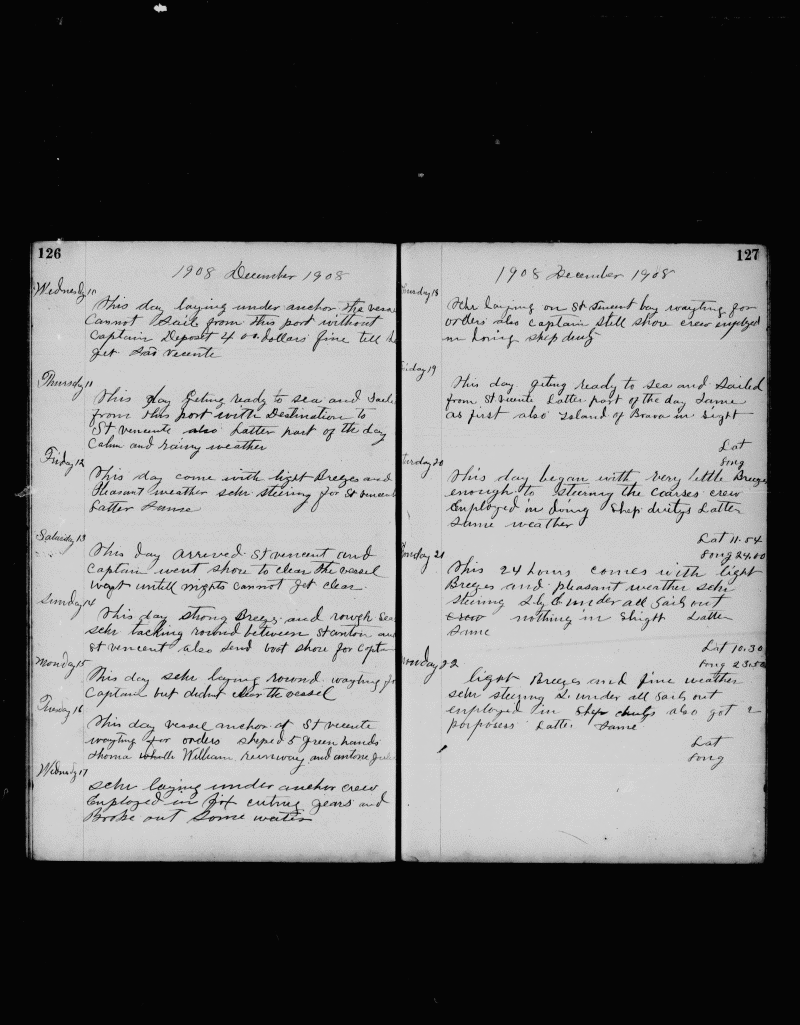 126
1908 December 1908
Wednesdy 10
This day laying under anchor the vesse
Cannot Sails from this port without
Captain Deposit 400 dollars fine tell
get Sao vecente
Thursdy 11
This day geting ready to sea and Saile
from this port with Destination to
St vencente also Latter part of the day
Calm and rainy weather
Friday 12
This day come with light Breezes and
Pleasant weather schr steiring for St vincent
Latter Samse
Saturday 13
This day arrived St vencent and
Captain went shore to clear the vessel
wayt untill nights cannot get clear
Sunday 14
This day strong Breezs and rowgh Sea
schr tacking round between St anton an
St vencent also Send boot shore for Captn
Monday 15
This day schr laying rownd wayting fo
Captain but didnt clear the vessel
Tuesday 16
This day vessel anchor at St vecente
wayting for orders sheped 5 green hands
thoma William, runway and antone
Wednsdy 17
Schr laying under anchor crew
Employed in fix cuting gears and
Broke out Some water
127
1908 December 1908
hursday 18
Schr laying on St Vincent bay wayting for
orders also Captain still shore crew imployed
in doing shep duty
riday 19
This day geting ready to sea and Sailed
from St vicente Latter part of the day Same
as first also Island of Brava in Sight
Lat
Long
turday 20
This day began with very little Breeze
enough to steering the coarses crew
Employed in doing Shep dutys Latter
Same weather
Lat 11.54
Long 24.00
onday 21
This 24 hours comes with light
Breezes and pleasant weather schr
steiring under all Sails out
Crew nothing in Shight Latter
Same
Lat 10.30
Long 23.50
onday 22
light Breezes and fine weather
schr steering S. under all Sails out
employed in Shep dutys also got 2
porposers Latter Same
Lat
Long